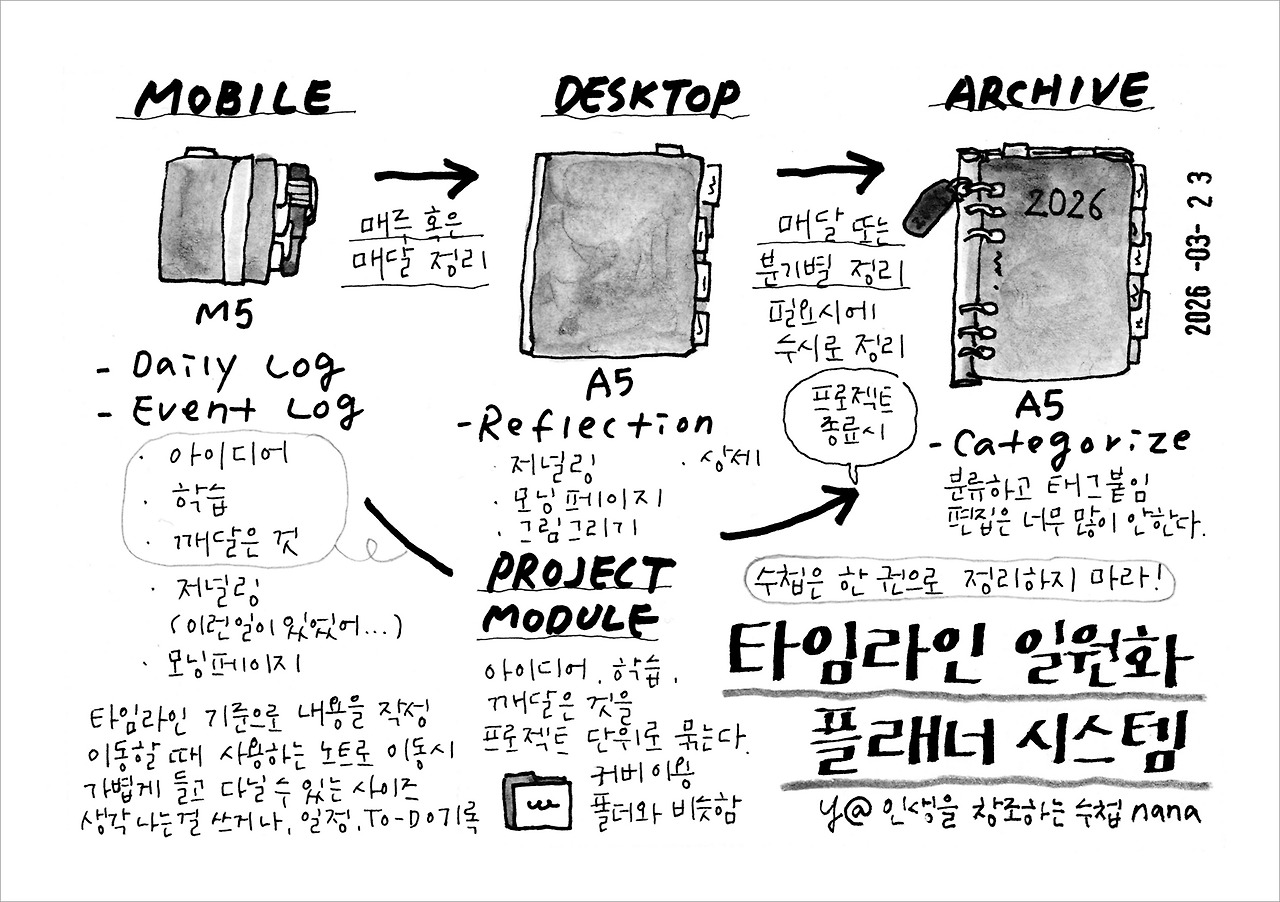 MOBILE
M5
- Daily Log
- Event Log
· 아이디어
· 학습
· 깨달은 것
· 저널링
(이런일이 있었어...)
· 모닝페이지
타임라인 기준으로 내용을 작성
이동할 때 사용하는 노트로 이동시
가볍게 들고 다닐 수 있는 사이즈
생각나는걸 쓰거나, 일정, To-Do 기록
매주 혹은
매달 정리
DESKTOP
A5
- Reflection
· 저널링 · 상세
· 모닝페이지
· 그림그리기
PROJECT
MODULE
아이디어, 학습,
깨달은 것을
프로젝트 단위로 묶는다.
커버 이용
폴더와 비슷함
매달 또는
분기별 정리
필요시에
수시로 정리
프로젝트
종료시
ARCHIVE
2026
A5
- Categorize
분류하고 태그붙임
편집은 너무 많이 안한다.
2026-03-23
수첩은 한 권으로 정리하지 마라!
타임라인 일원화
플래너 시스템
by@ 인생을 창조하는 수첩 nana